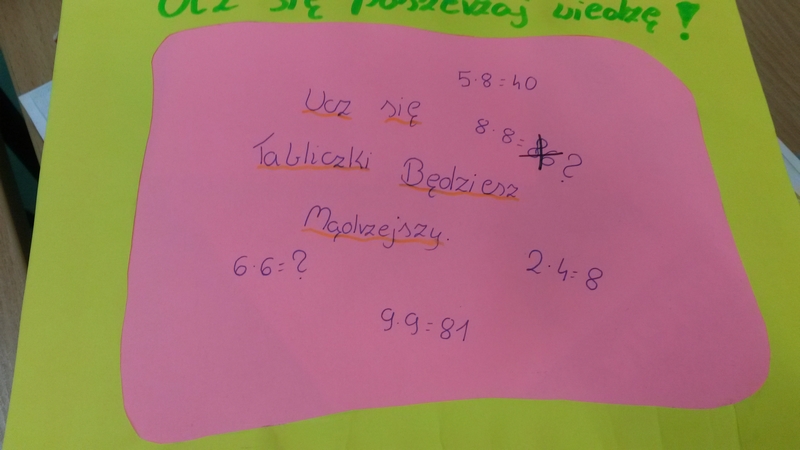 Ucz się poszerzaj wiedzę!
5·8=40
Ucz się
8·8= ?
Tabliczki Będziesz
Mądrzejszy.
6·6=?
2·4=8
9·9=81